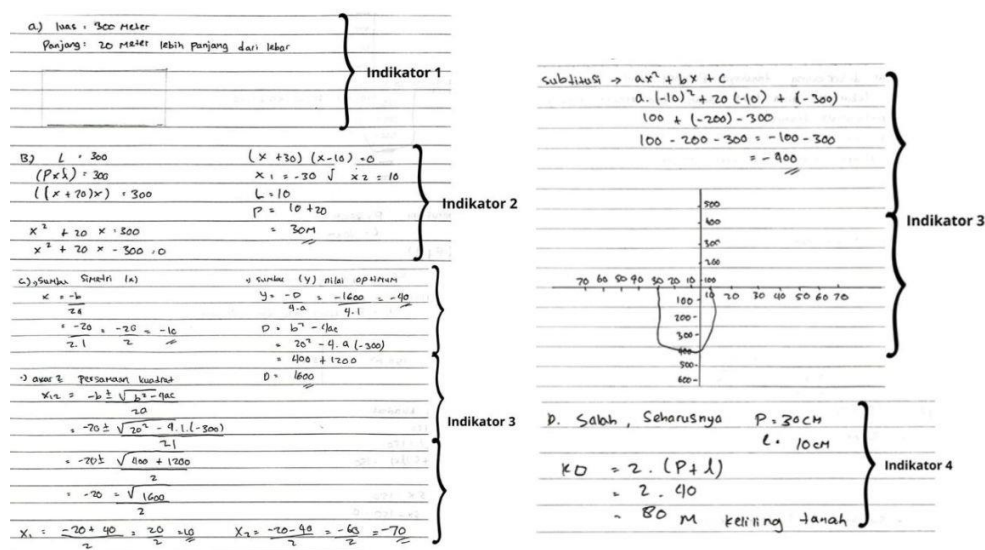 a.) luas : 300 Meter
Panjang : 20 Meter lebih Panjang dari lebar
Indikator 1
B) L : 300
(P x l) = 300
((x + 20)x) = 300
x² + 20 x = 300
x² + 20 x - 300 = 0
(x + 30) (x - 10) = 0
x1 = -30 √ x2 = 10
L = 10
P = 10 + 20
= 30M
Indikator 2
c) Sumbu Simetri (x)
x = -b
2a
= -20 = -20 = -10
2.1 2
Sumbu (y) nilai optimum
y = -D = -1600 = -40
4.a 4.1
D = b² - 4ac
= 20² - 4.a (-300)
= 400 + 1200
D = 1600
akar² Persamaan kuadrat
x12 = -b ± √b² - 4ac
2a
= -20 ± √20² - 4.1.(-300)
21
= -20 ± √400 + 1200
2
= -20 = √1600
2
x1 = -20 + 40 = 20 = 10
2 2
x2 = -20 - 40 = -60 = -70
2 2
Indikator 3
Substitusi → ax² + bx + c
a. (-10)² + 20 (-10) + (-300)
100 + (-200) - 300
100 - 200 - 300 = -100 - 300
= -400
500
400
300
200
70 60 50 40 30 20 10 100
10 20 30 40 50 60 70
100
200
300
400
500
600
Indikator 3
D. Salah, Seharusnya P = 30 cm
l = 10 cm
KD = 2 . (P + l)
= 2 . 40
= 80 M keliling tanah
Indikator 4